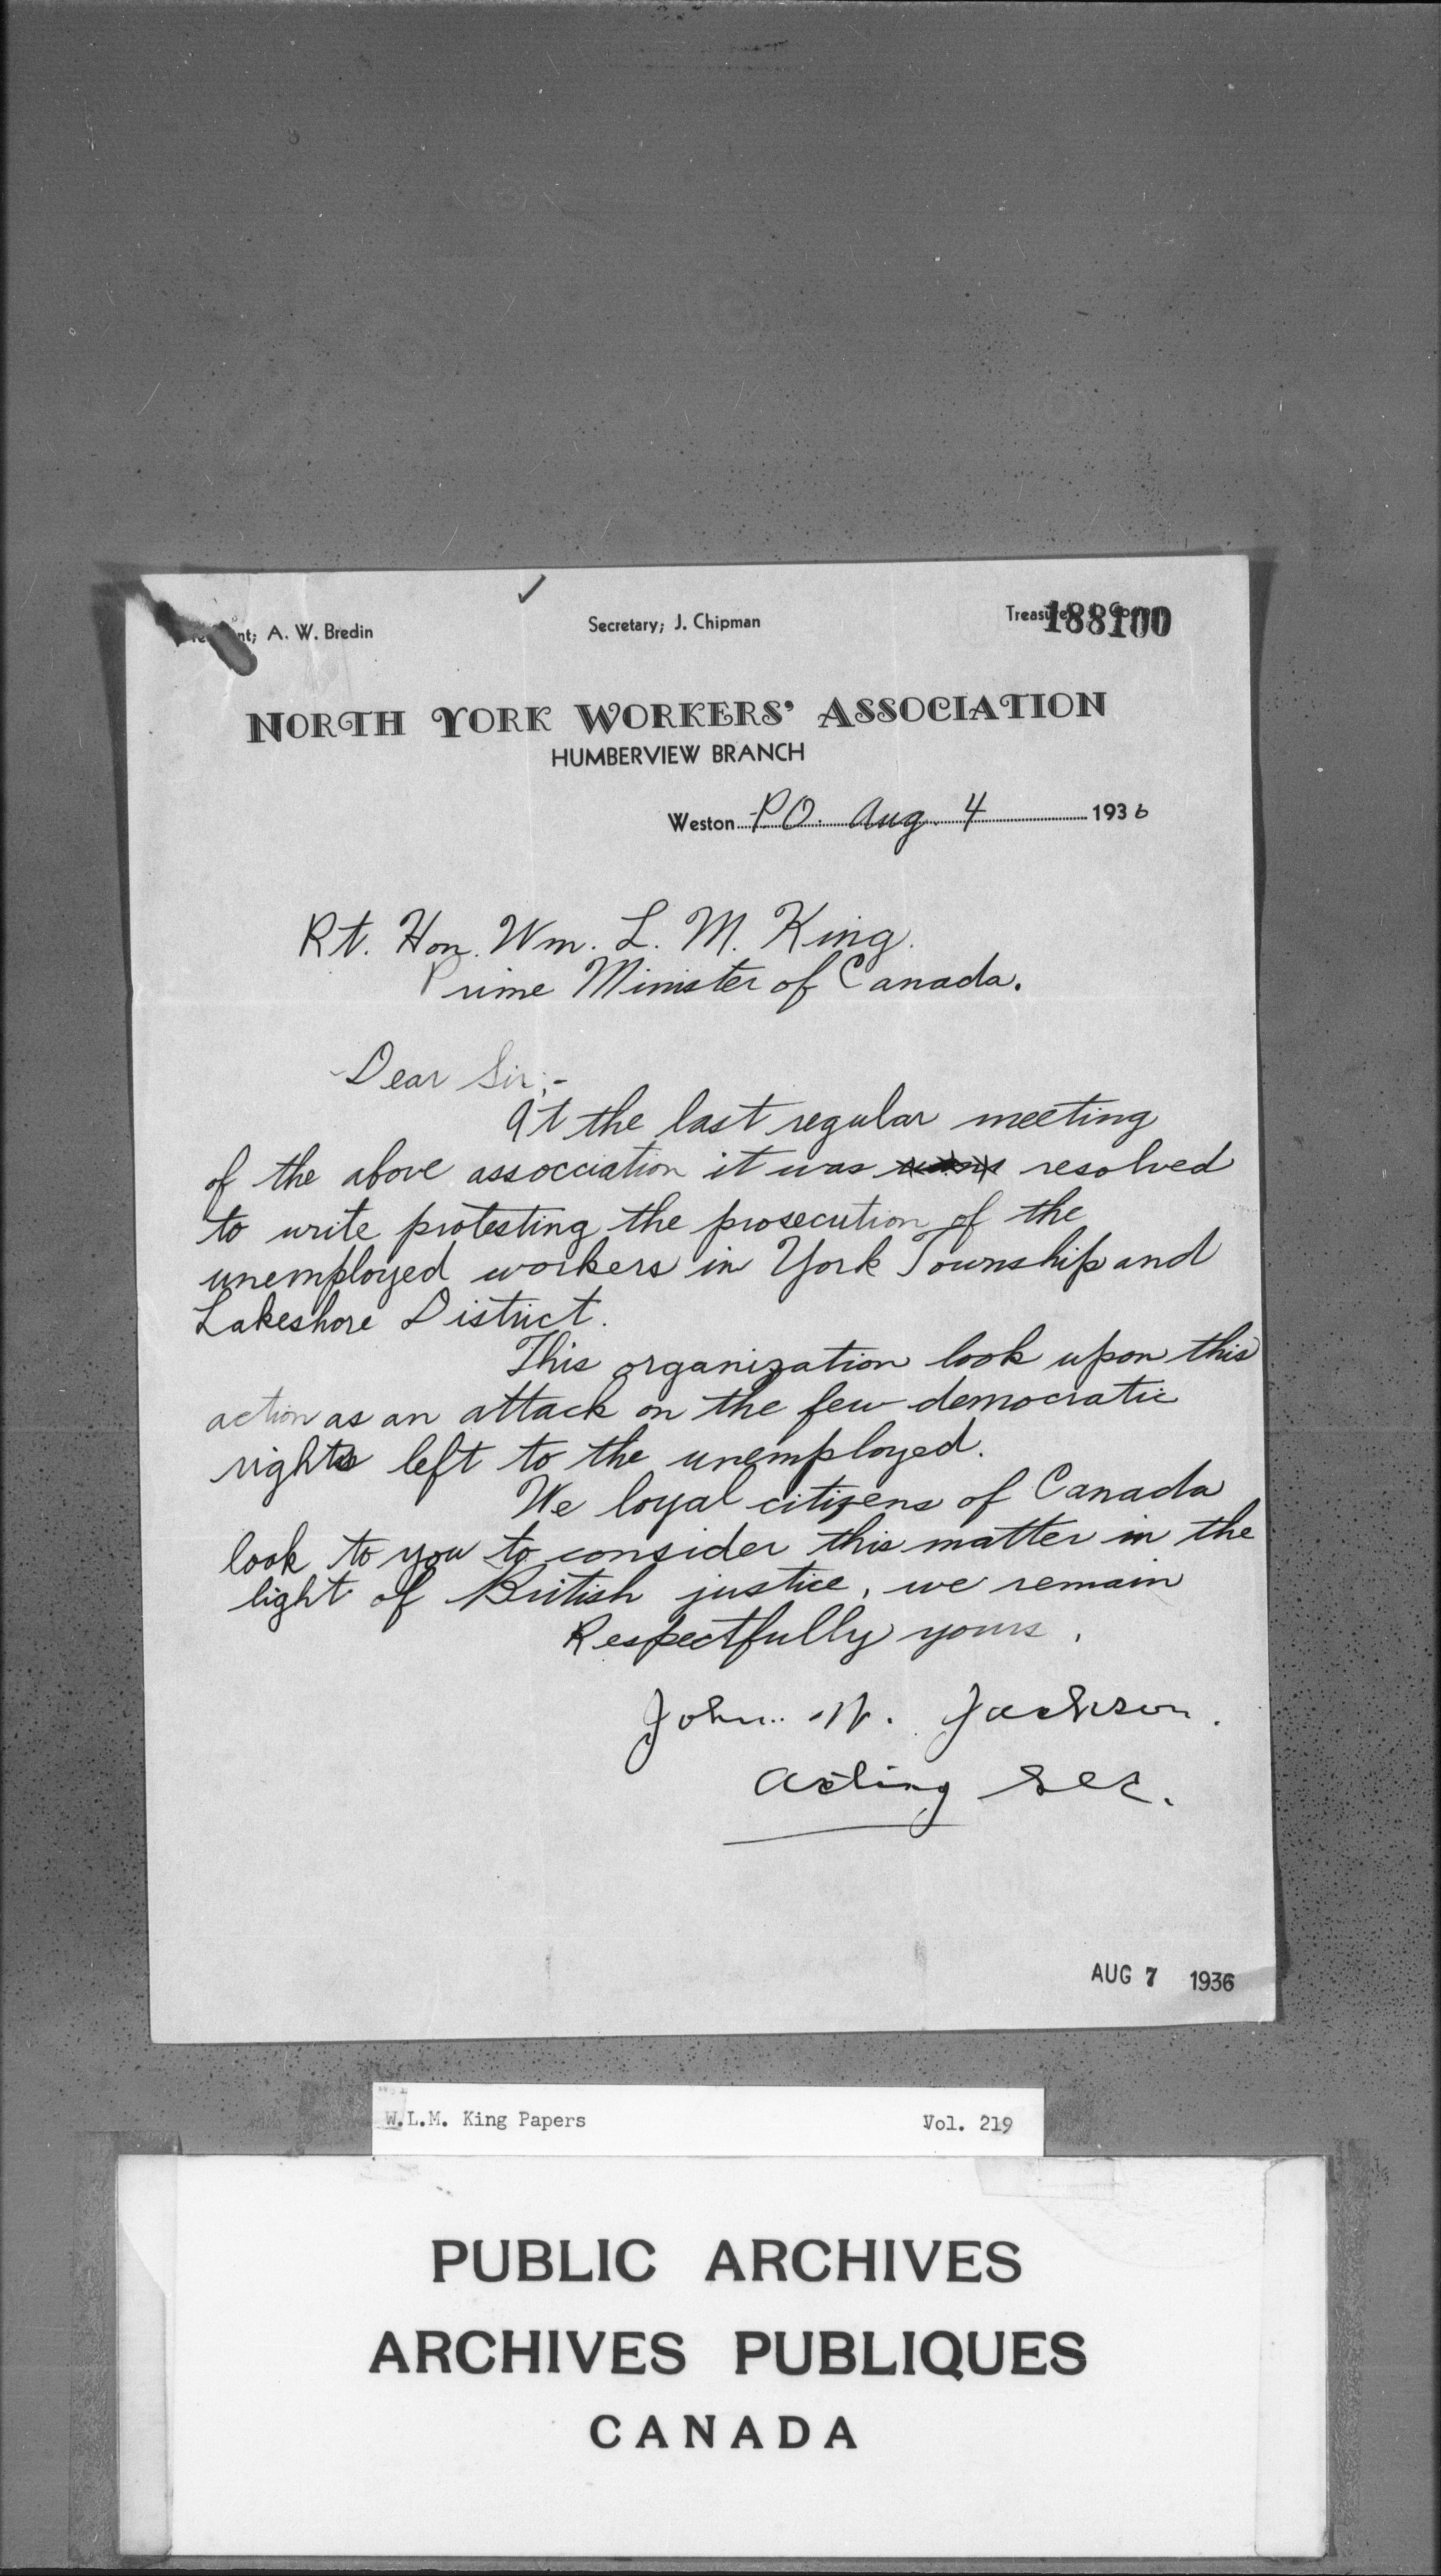 ✓
President; A. W. Bredin Secretary; J. Chipman Treasurer 188100
NORTH YORK WORKERS' ASSOCIATION
HUMBERVIEW BRANCH
Weston P.O. Aug. 4 1936
Rt. Hon. Wm. L. M. King.
Prime Minister of Canada.
Dear Sir;-
At the last regular meeting
of the above assocciation it was resolved
to write protesting the prosecution of the
unemployed workers in York Township and
Lakeshore District.
This organization look upon this
action as an attack on the few democratic
rights left to the unemployed.
We loyal citizens of Canada
look to you to consider this matter in the
light of British justice, we remain
Respectfully yours,
John. W. Jackson.
Acting Sec.
AUG 7 1936
W.L.M. King Papers Vol. 219
PUBLIC ARCHIVES
ARCHIVES PUBLIQUES
CANADA